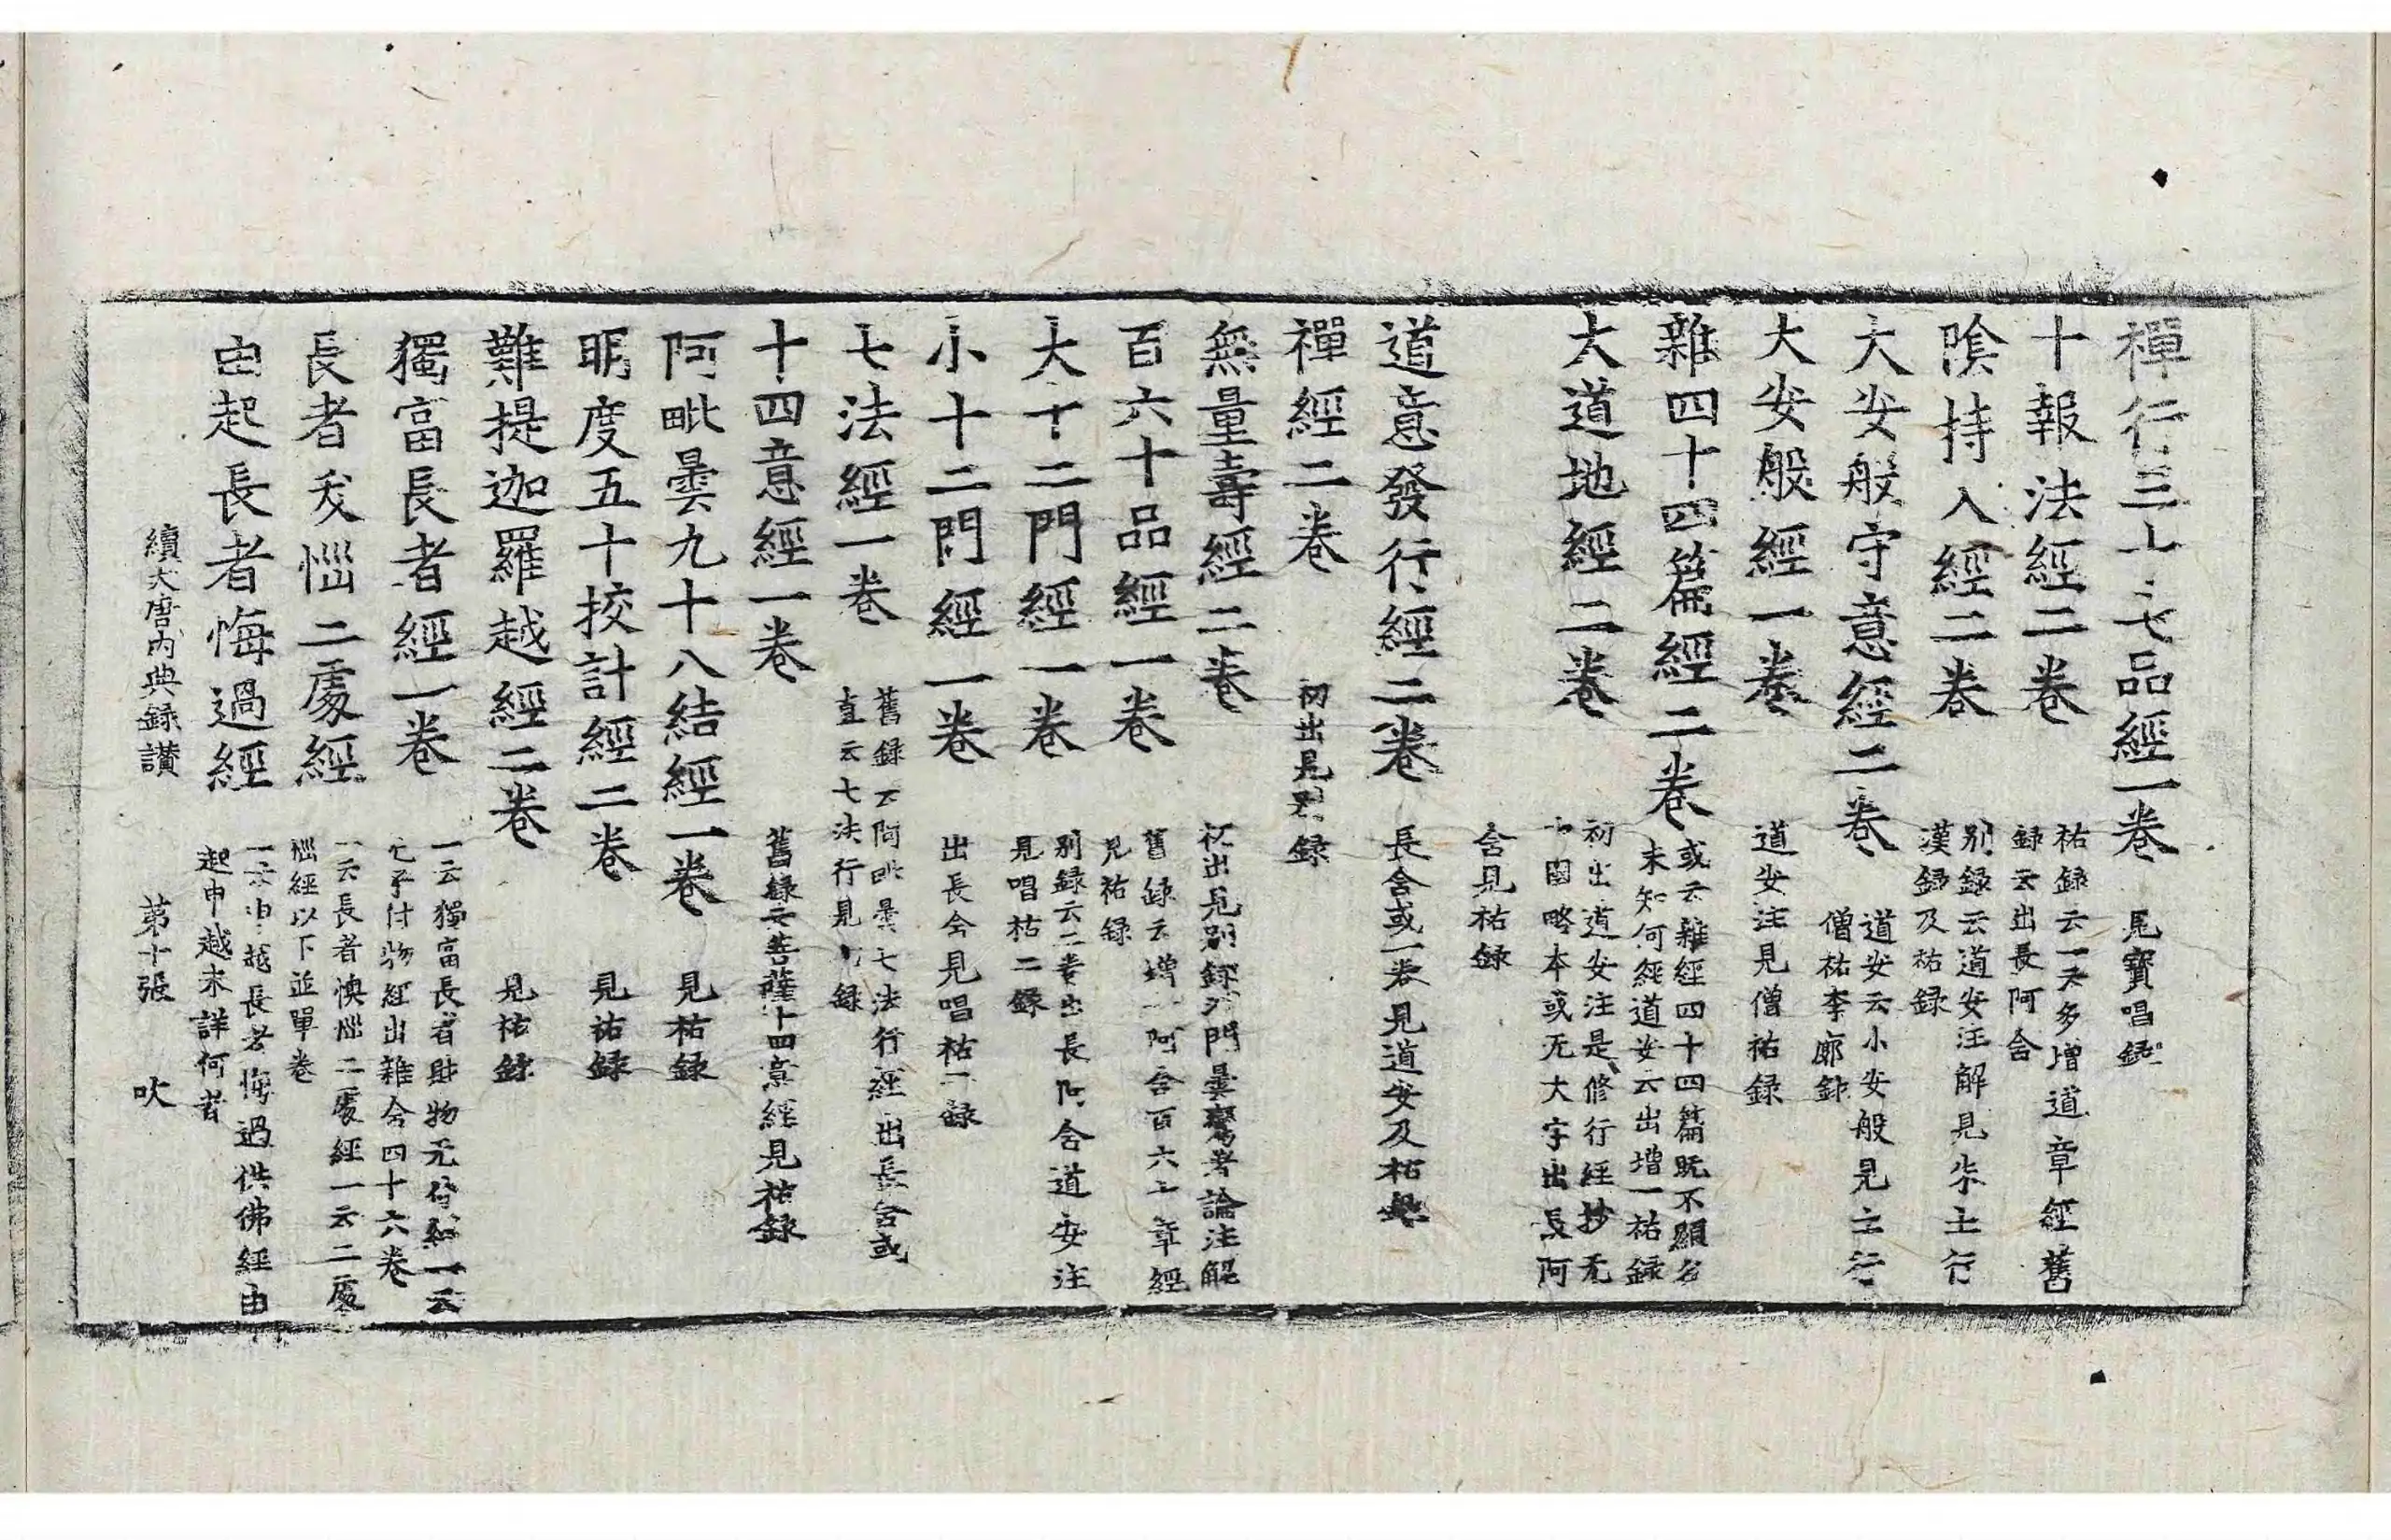 禪行三十七品經一卷 見寶唱錄
十報法經二卷 祐録云一卷多增道章經舊
録云出長阿含
陰持入經二卷 別録云道安注解見朱士行
漢録及祐録
大安般守意經二卷 道安云小安般見士行
僧祐李廓録
大安般經一卷 道安注見僧祐録
雜四十四篇經二卷 或云雜經四十四篇既不顯名
未知何經道安云出增一祐録
大道地經二卷 初出道安注是修行經抄元
國略本或无大字出長阿
含見祐録
道意發行經二卷 長含或一卷見道安及祐録
禪經二卷 初出見別録
無量壽經二卷 初出見別録沙門曇鸞者論注解
百六十品經一卷 舊録云增一阿含百六十章經
見祐録
大十二門經一卷 別録云二卷出長阿含道安注
見唱祐二録
小十二門經一卷 出長含見唱祐二録
七法經一卷 舊録云阿毗曇七法行經出長含或
直云七法行見祐録
十四意經一卷 舊録云菩薩十四意經見祐録
阿毗曇九十八結經一卷 見祐録
明度五十挍計經二卷 見祐録
難提迦羅越經二卷 見祐録
獨富長者經一卷 一云獨富長者財物无付經一云
亡子付物經出雜含四十六卷
長者夜惱二處經 一云長者懊惱二處經一云二處
惱經以下並單卷
由起長者悔過經 一云申越長者悔過供佛經由
起申越未詳何者
續大唐內典録讃 第十張 吹